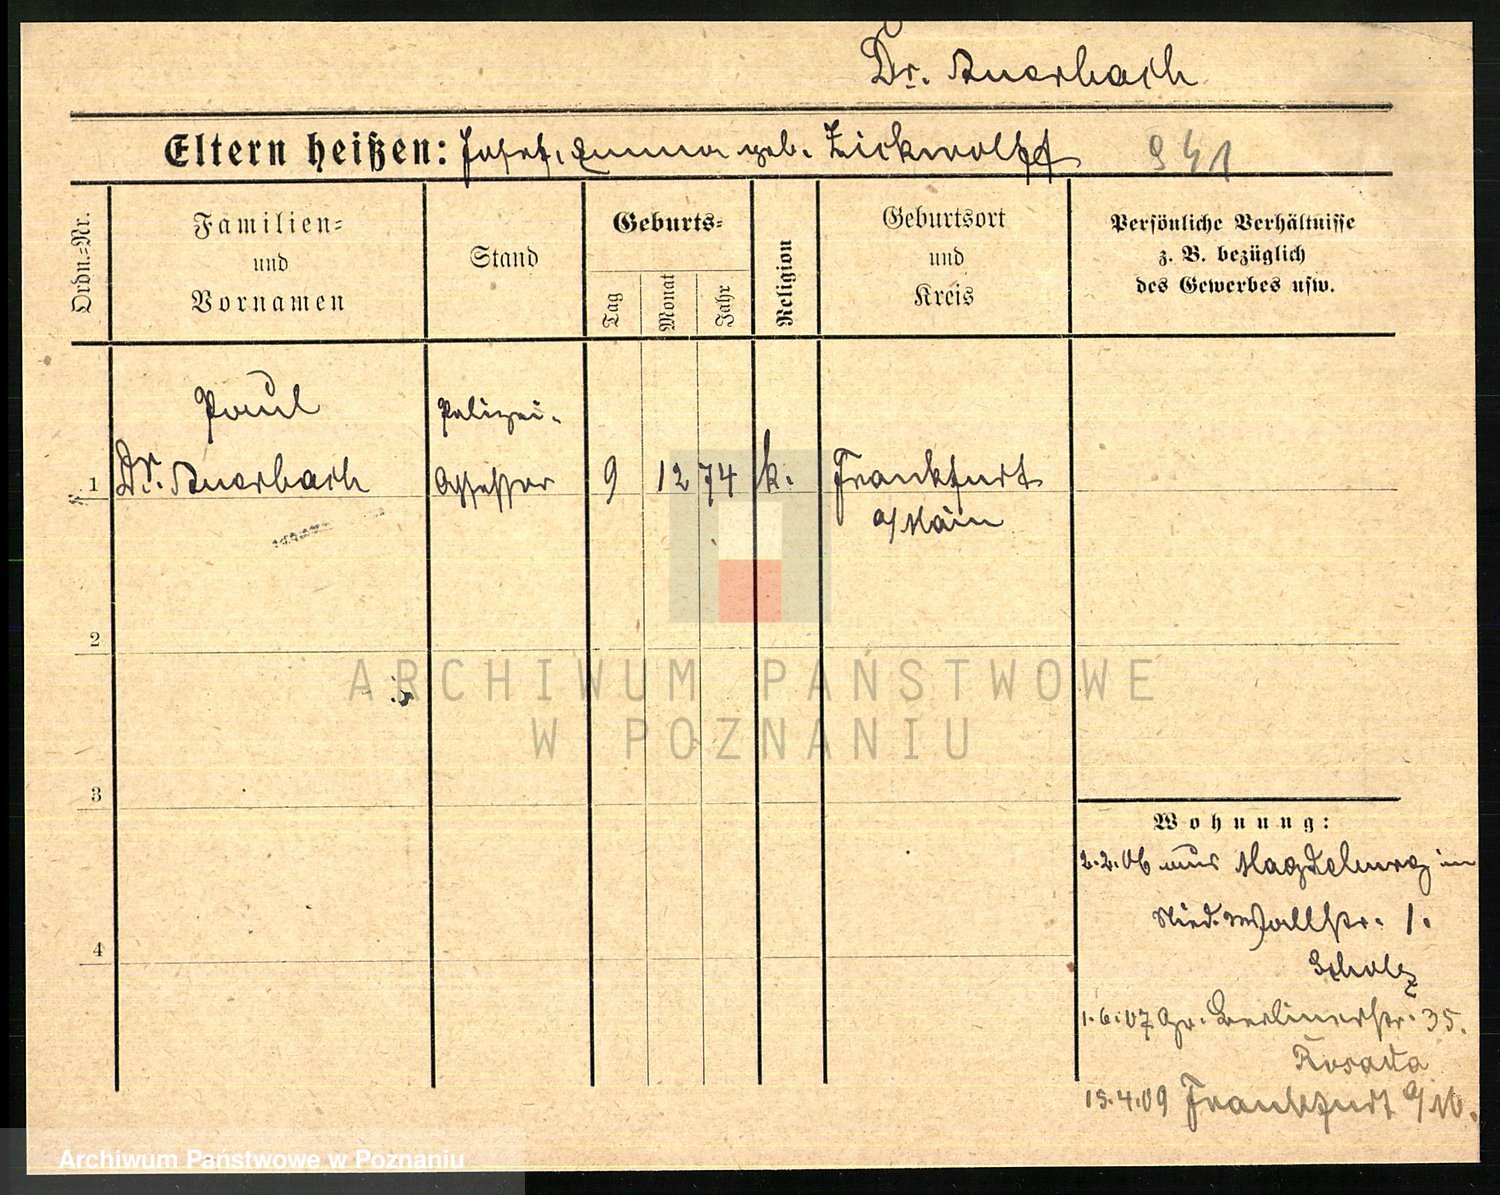 Dr. Auerbach
Eltern heißen: Josef, Emma geb. Zickwolff 941
Ordn.-Nr.
Familien-
und
Vornamen
Stand
Geburts-
Tag
Monat
Jahr
Religion
Geburtsort
und
Kreis
Persönliche Verhältnisse
z. B. bezüglich
des Gewerbes usw.
Paul
Polizei-
1 Dr. Auerbach Assessor 9 12 74 k. Frankfurt
a/Main
2
ARCHIWUM PAŃSTWOWE
W POZNANIU
3
Wohnung:
2.2.06 aus Magdeburg in
Nied. Wallstr. 1.
Scholz
4
1.6.07 Gr. Berlinerstr. 35.
Rosada
15.4.09 Frankfurt a/M.
Archiwum Państwowe w Poznaniu